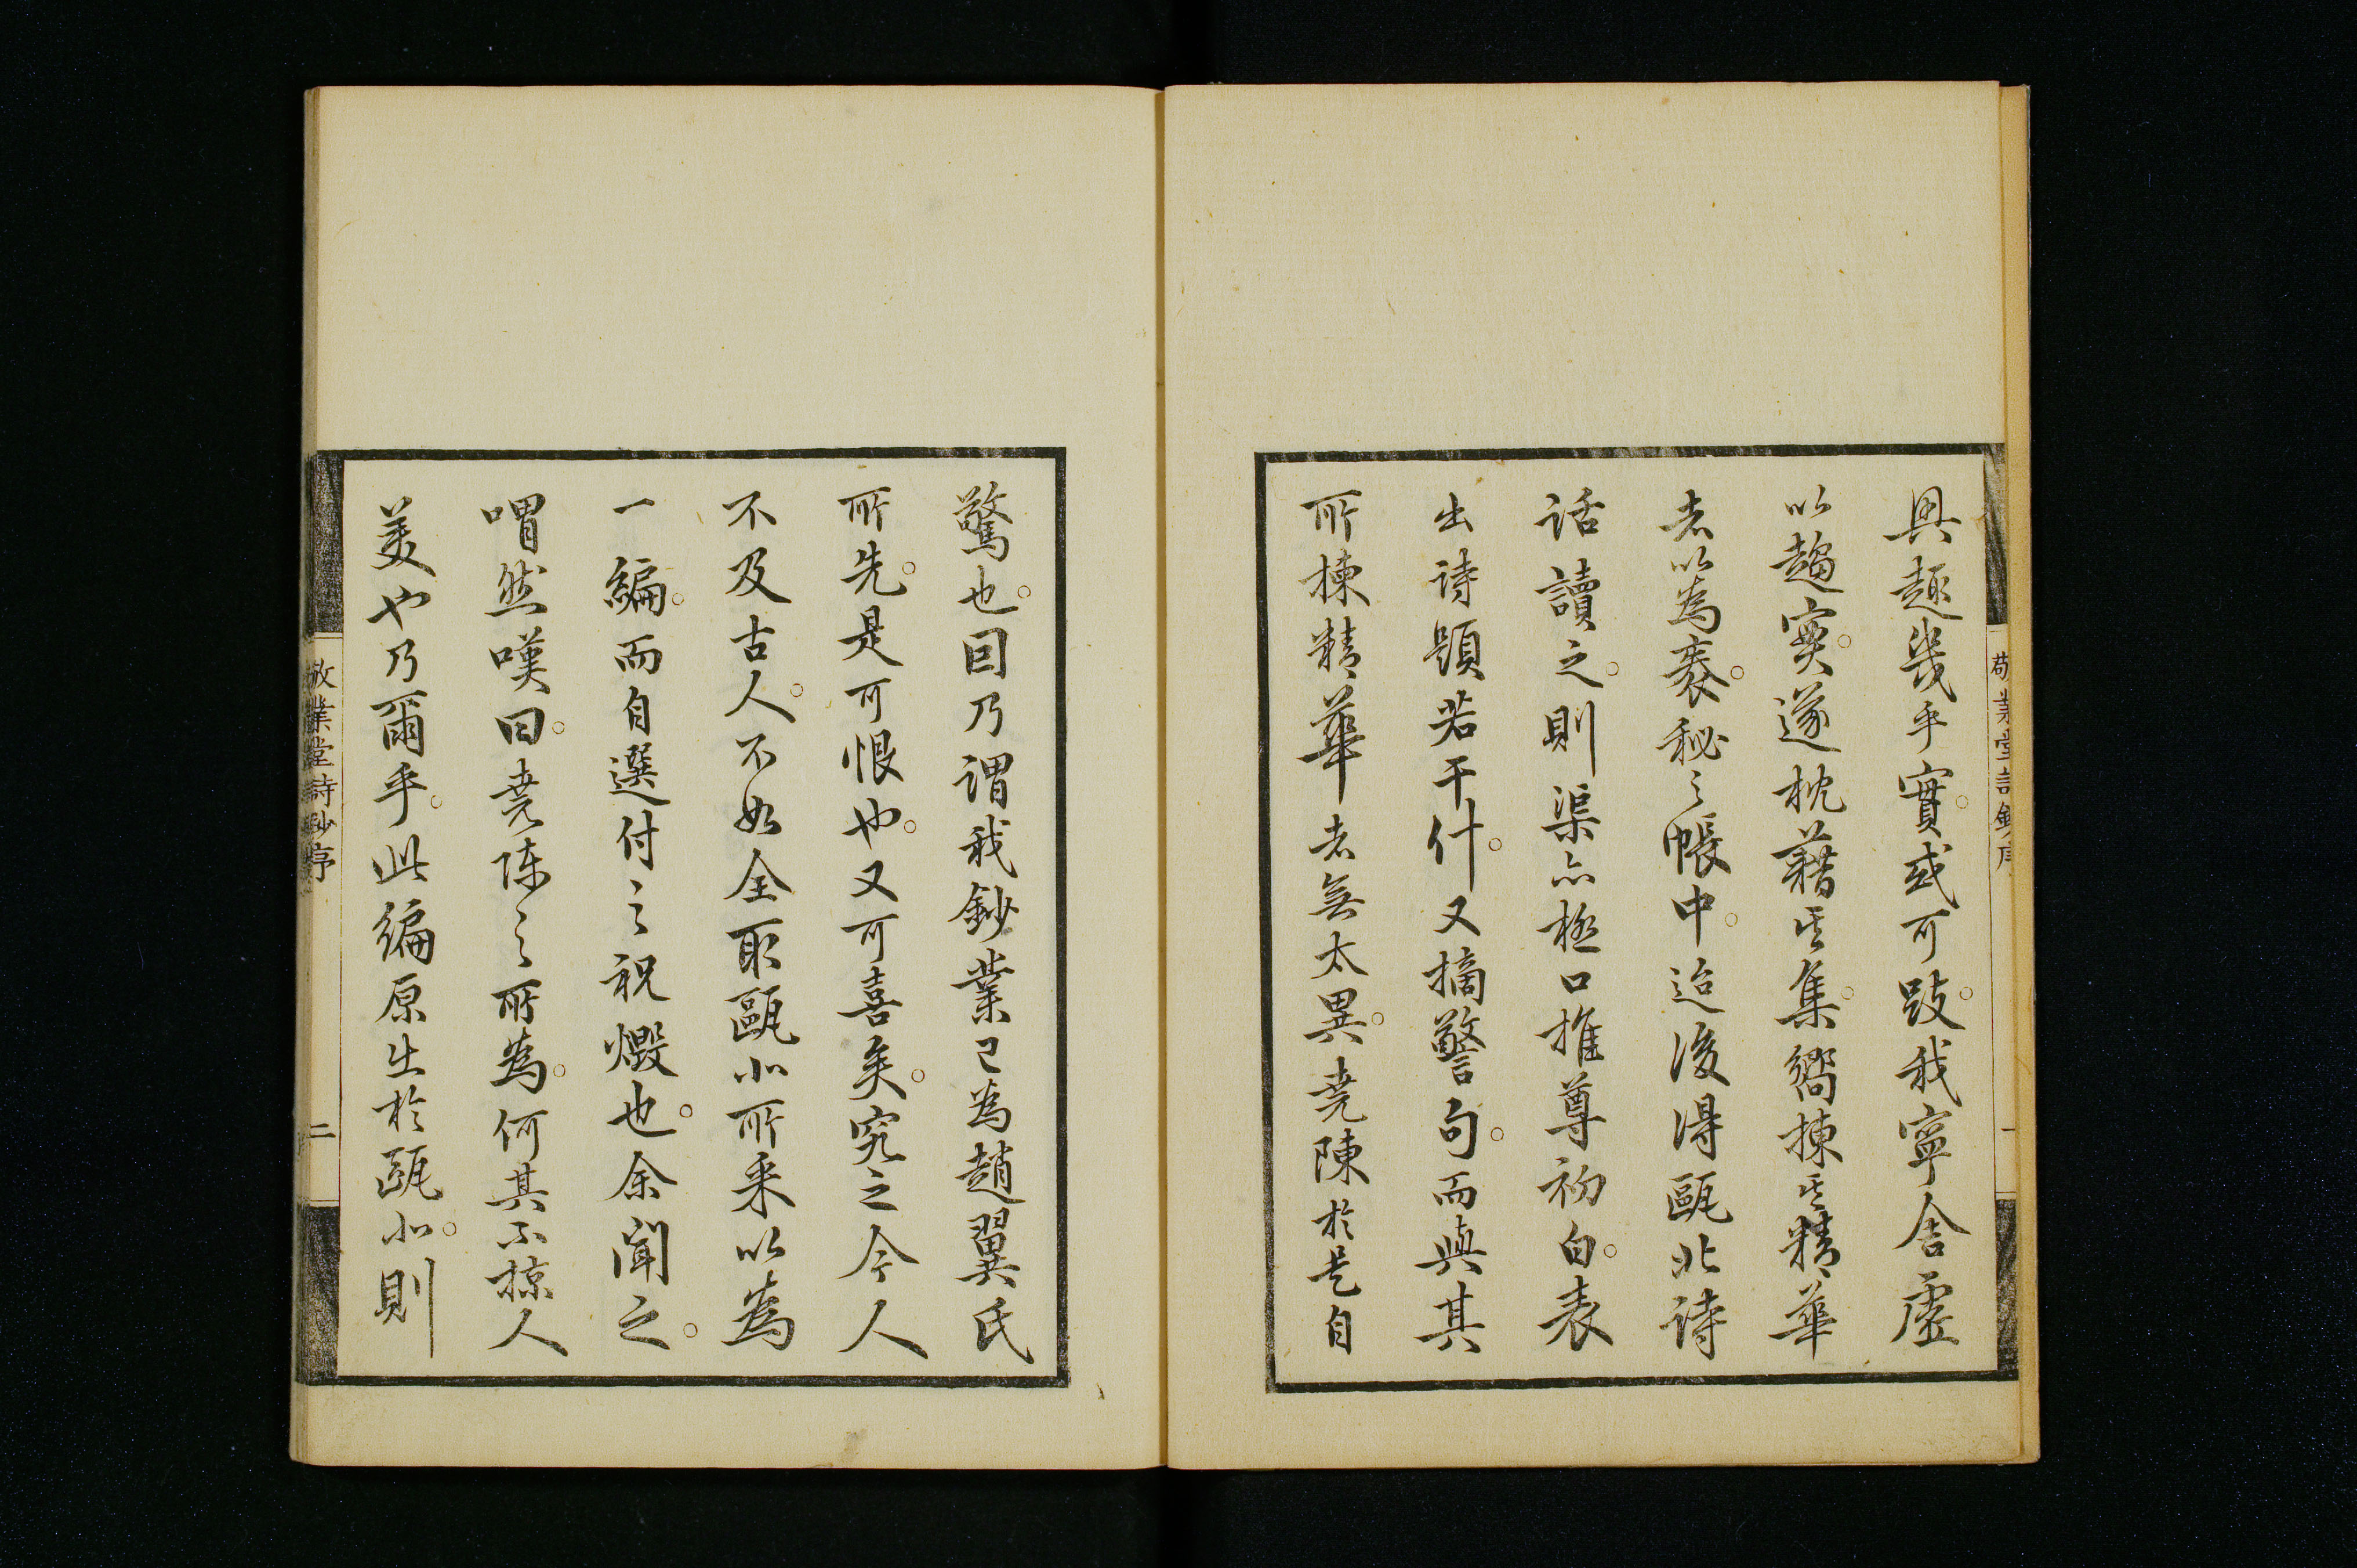 興趣幾乎實。或可跂。我寧舎虚
以趨實。遂枕藉其集。嚮揀其精華
者以為袠。秘之帳中。迨後得甌北詩
話讀之。則渠亦極口推尊初白。表
出詩題若干什。又摘警句。而與其
所揀精華者無太異。堯陳於是自
驚也。因乃謂我鈔業已為趙翼氏
所先。是可恨也。又可喜矣。究之今人
不及古人。不如全取甌北所采以為
一編。而自選付之祝燬也。余聞之。
喟然嘆曰。堯陳之所為。何其不掠人
美也乃爾乎。此編原出於甌北。則
敬業堂詩鈔序
一
敬業堂詩鈔序
二